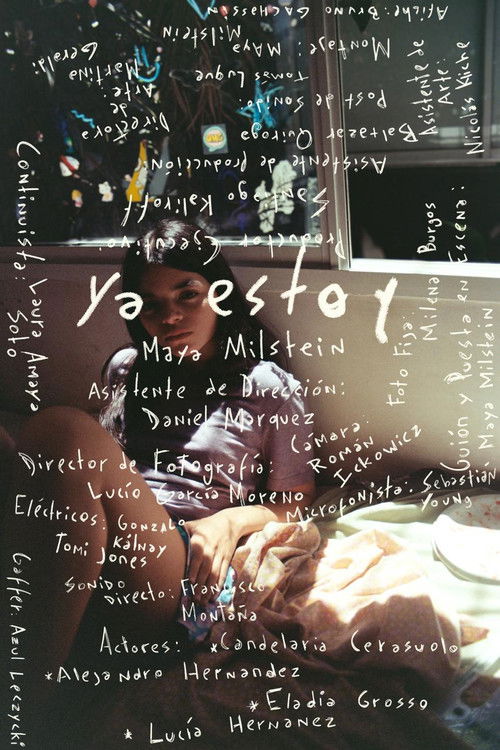 Afiche: Bruno Gachassin
Montaje: Maya
Milstein
Post de Sonido:
Tomas Luque
Directora
de
Arte:
Martina
Geraldi
Asistente de producción:
Baltazar Quiroga
Productor Ejecutivo:
Santiago Kalikoff
Asistente de
Arte:
Nicolás Kliche
Continuista: Laura Amaya
Soto
ya estoy
Maya Milstein
Asistente de Dirección:
Daniel Marquez
Director de Fotografía:
Lucio García Moreno
Cámara:
Román
Ickowicz
Foto Fija:
Milena Burgos
Guión y Puesta en Escena:
Maya Milstein
Microfonista: Sebastián
Young
Eléctricos: Gonzalo
Kálnay
Tomi Jones
Sonido
Directo: Francisco
Montaña
Gaffer: Azul Leczycki
Actores: *Candelaria Cerasuolo
*Alejandro Hernandez
*Eladia Grosso
* Lucía Hernanez